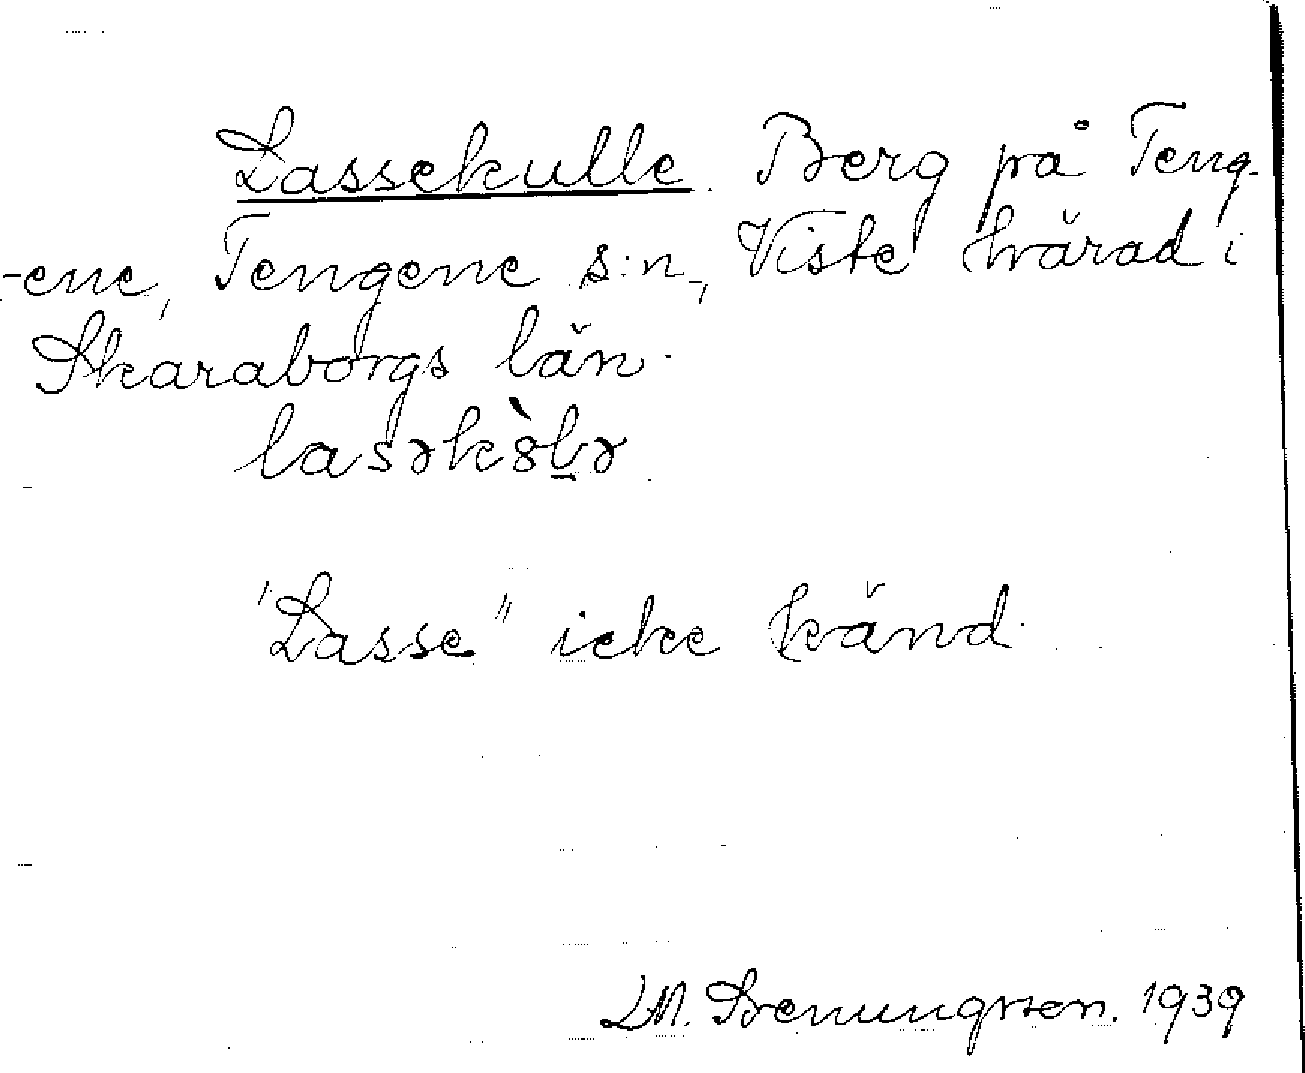 Lassekulle. Berg på Teng-
-ene, Tengene s:n, Viste härad i
Skaraborgs län.
"Lasse" icke känd.
LM. Svenungsson. 1939